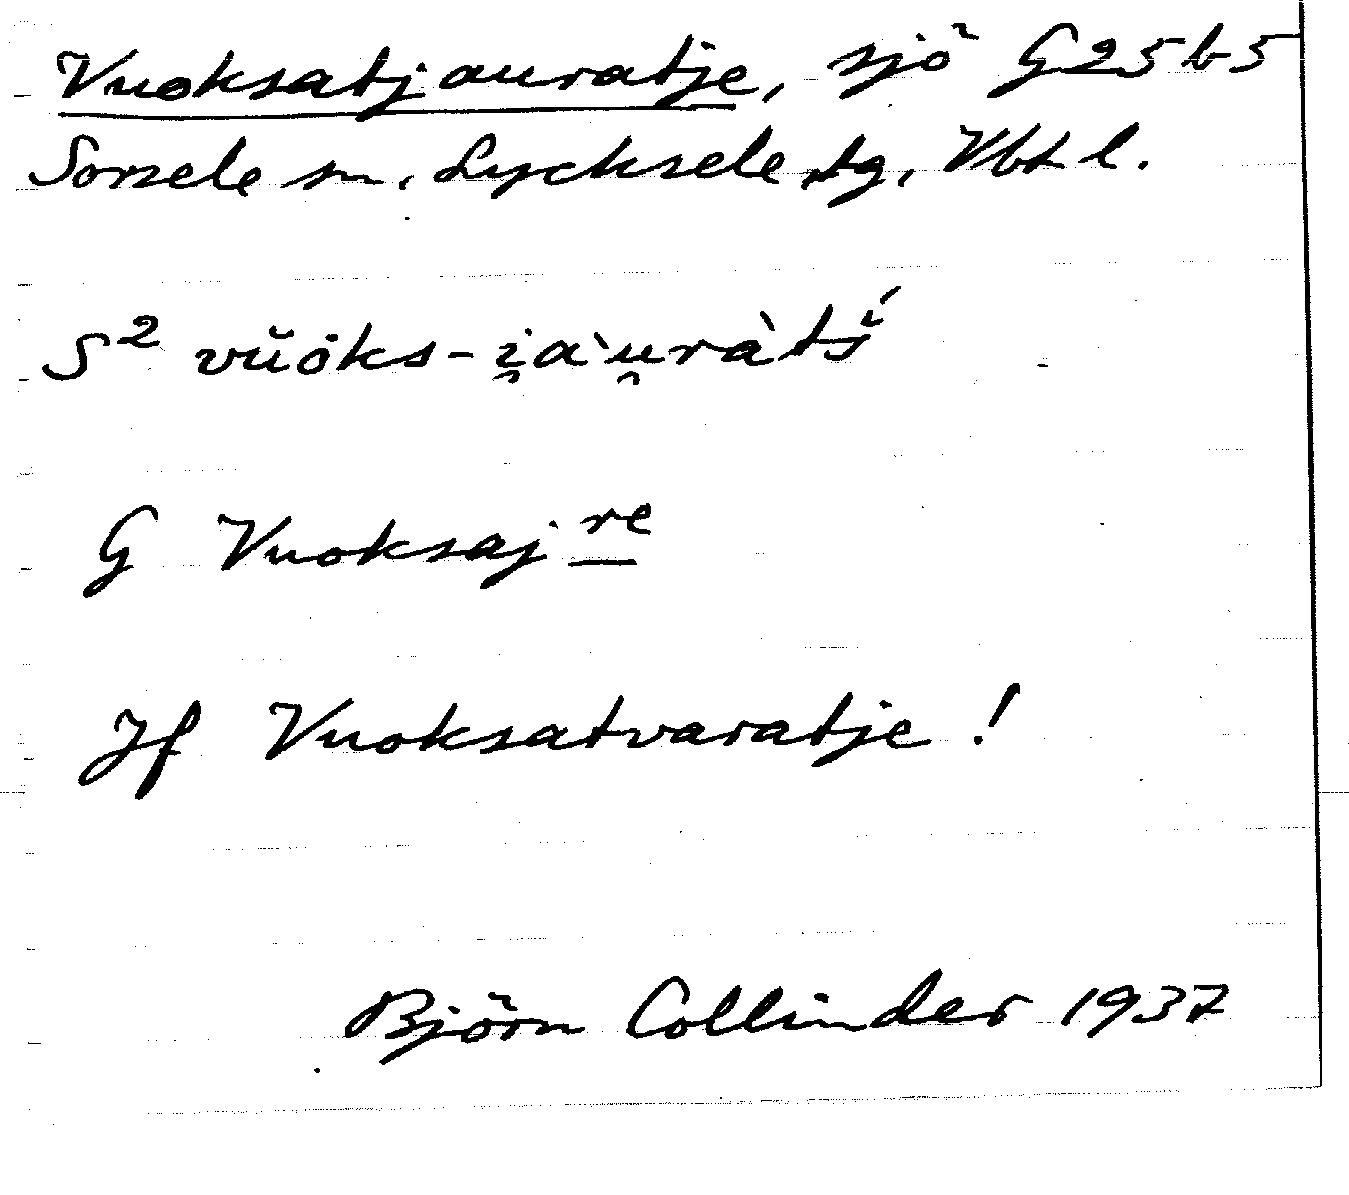 Vuoksatjauratje, sjö G25b5
Sorsele sn, Lycksele tg, Vbt l.
S² vŭȯks-i̯a`u̯ràtš́
G Vuoksajre
Jf Vuoksatvaratje!
Björn Collinder 1937